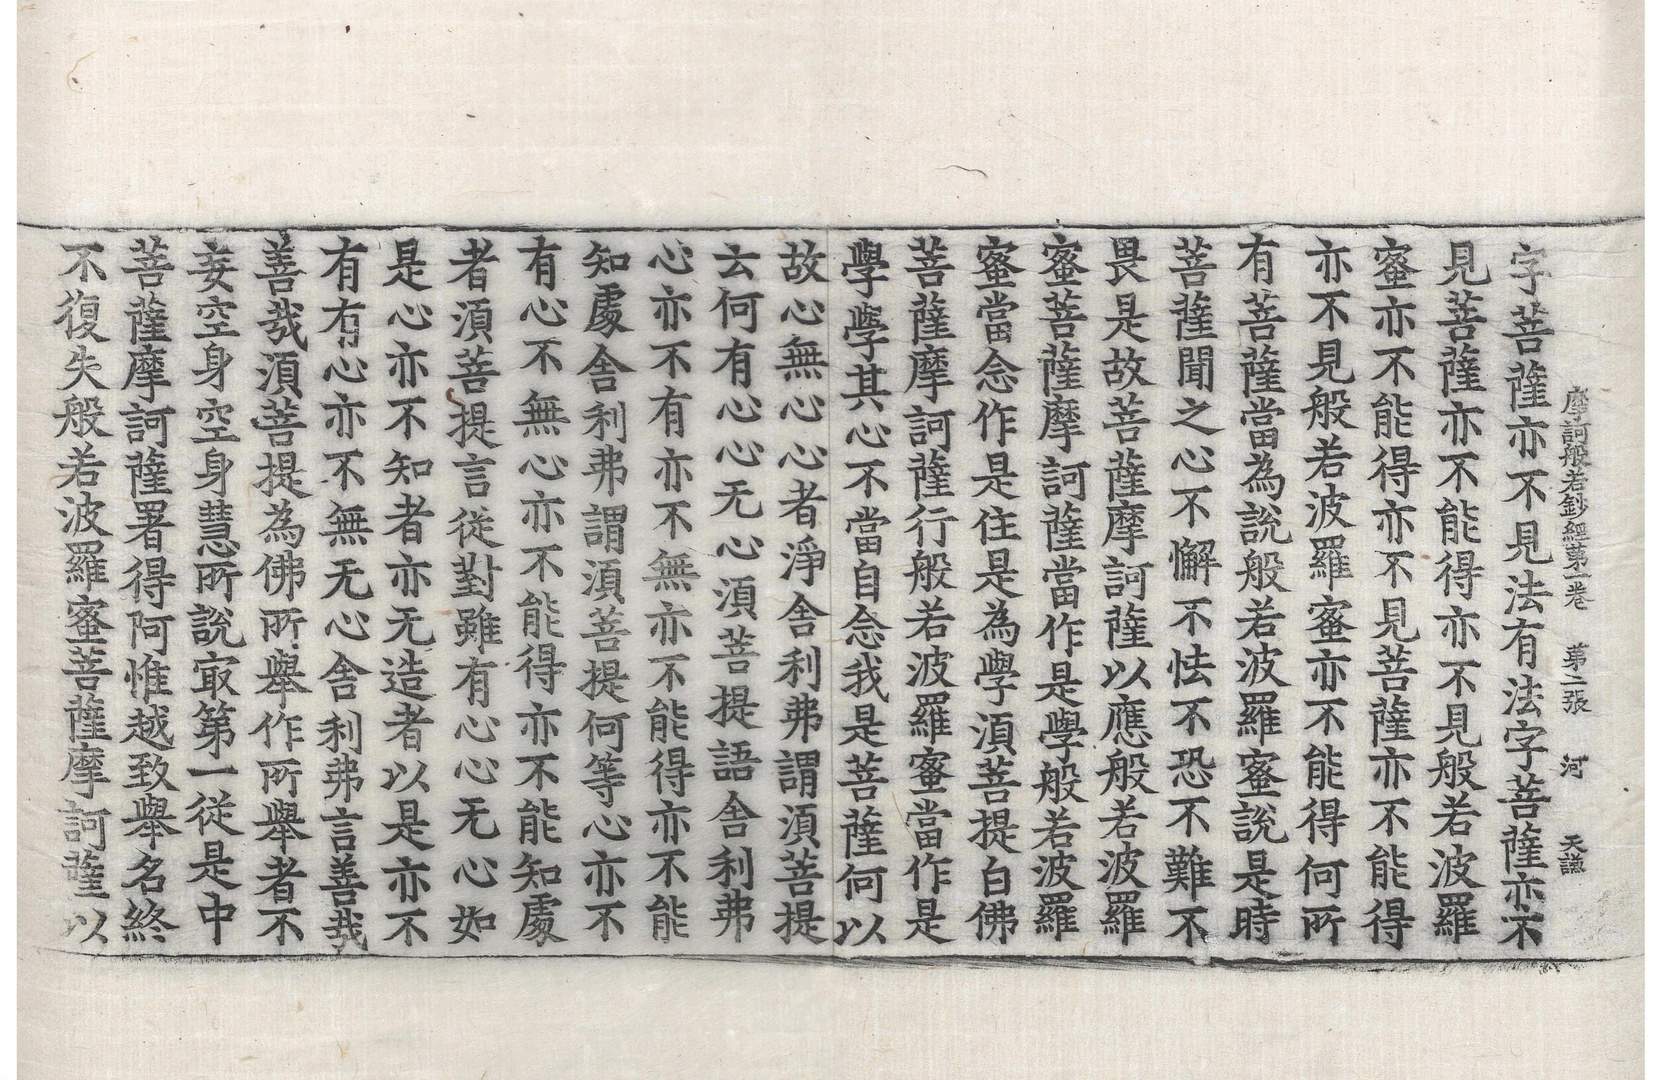 摩訶般若鈔經第一卷　第二張　河　天謙
字菩薩亦不見法有法字菩薩亦不
見菩薩亦不能得亦不見般若波羅
蜜亦不能得亦不見菩薩亦不能得
亦不見般若波羅蜜亦不能得何所
有菩薩當為說般若波羅蜜說是時
菩薩聞之心不懈不怯不恐不難不
畏是故菩薩摩訶薩以應般若波羅
蜜菩薩摩訶薩當作是學般若波羅
蜜當念作是住是為學湏菩提白佛
菩薩摩訶薩行般若波羅蜜當作是
學學其心不當自念我是菩薩何以
故心無心心者淨舍利弗謂湏菩提
云何有心心无心湏菩提語舍利弗
心亦不有亦不無亦不能得亦不能
知處舍利弗謂湏菩提何等心亦不
有心不無心亦不能得亦不能知處
者湏菩提言從對雖有心心无心如
是心亦不知者亦无造者以是亦不
有有心亦不無无心舍利弗言善哉
善哉湏菩提為佛所舉作所舉者不
妄空身空身慧所說㝡第一從是中
菩薩摩訶薩署得阿惟越致舉名終
不復失般若波羅蜜菩薩摩訶薩以